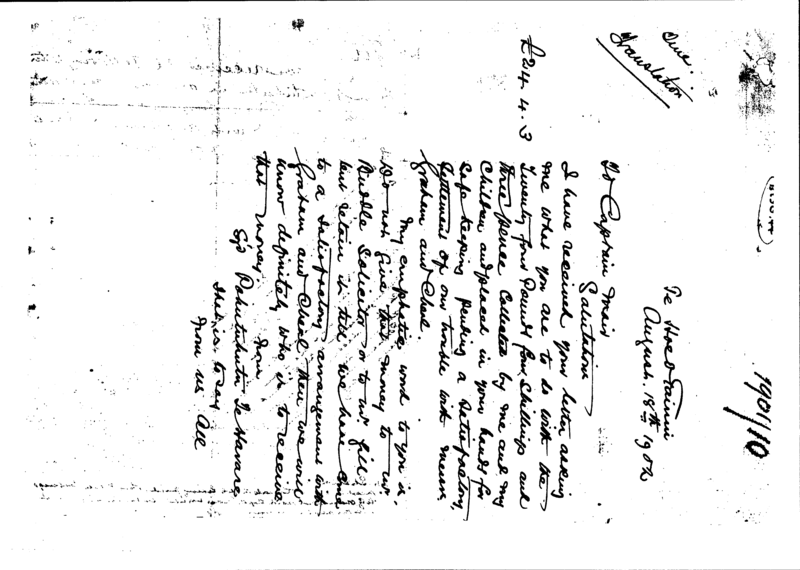 1901/110
True
Translation
August. 18th 1902
To Captain Mair
Salutations
I have received your letter asking
me what you are to do with the
£24.4.3
Twenty four Pounds four Shillings and
three pence Collected by me and my
Children and placed in your hands for
safe keeping pending a satisfactory
settlement of our trouble with Messrs
Graham and Cheal.
My emphatic word to you is.
Do not give that money to Mr.
Buddle Solicitor or to Mr. Gill
but retain it till we have come
to a satisfactory arrangement with
Graham and Cheal, then we will
know definitely who is to receive
that money.
from
that is to say
from us all